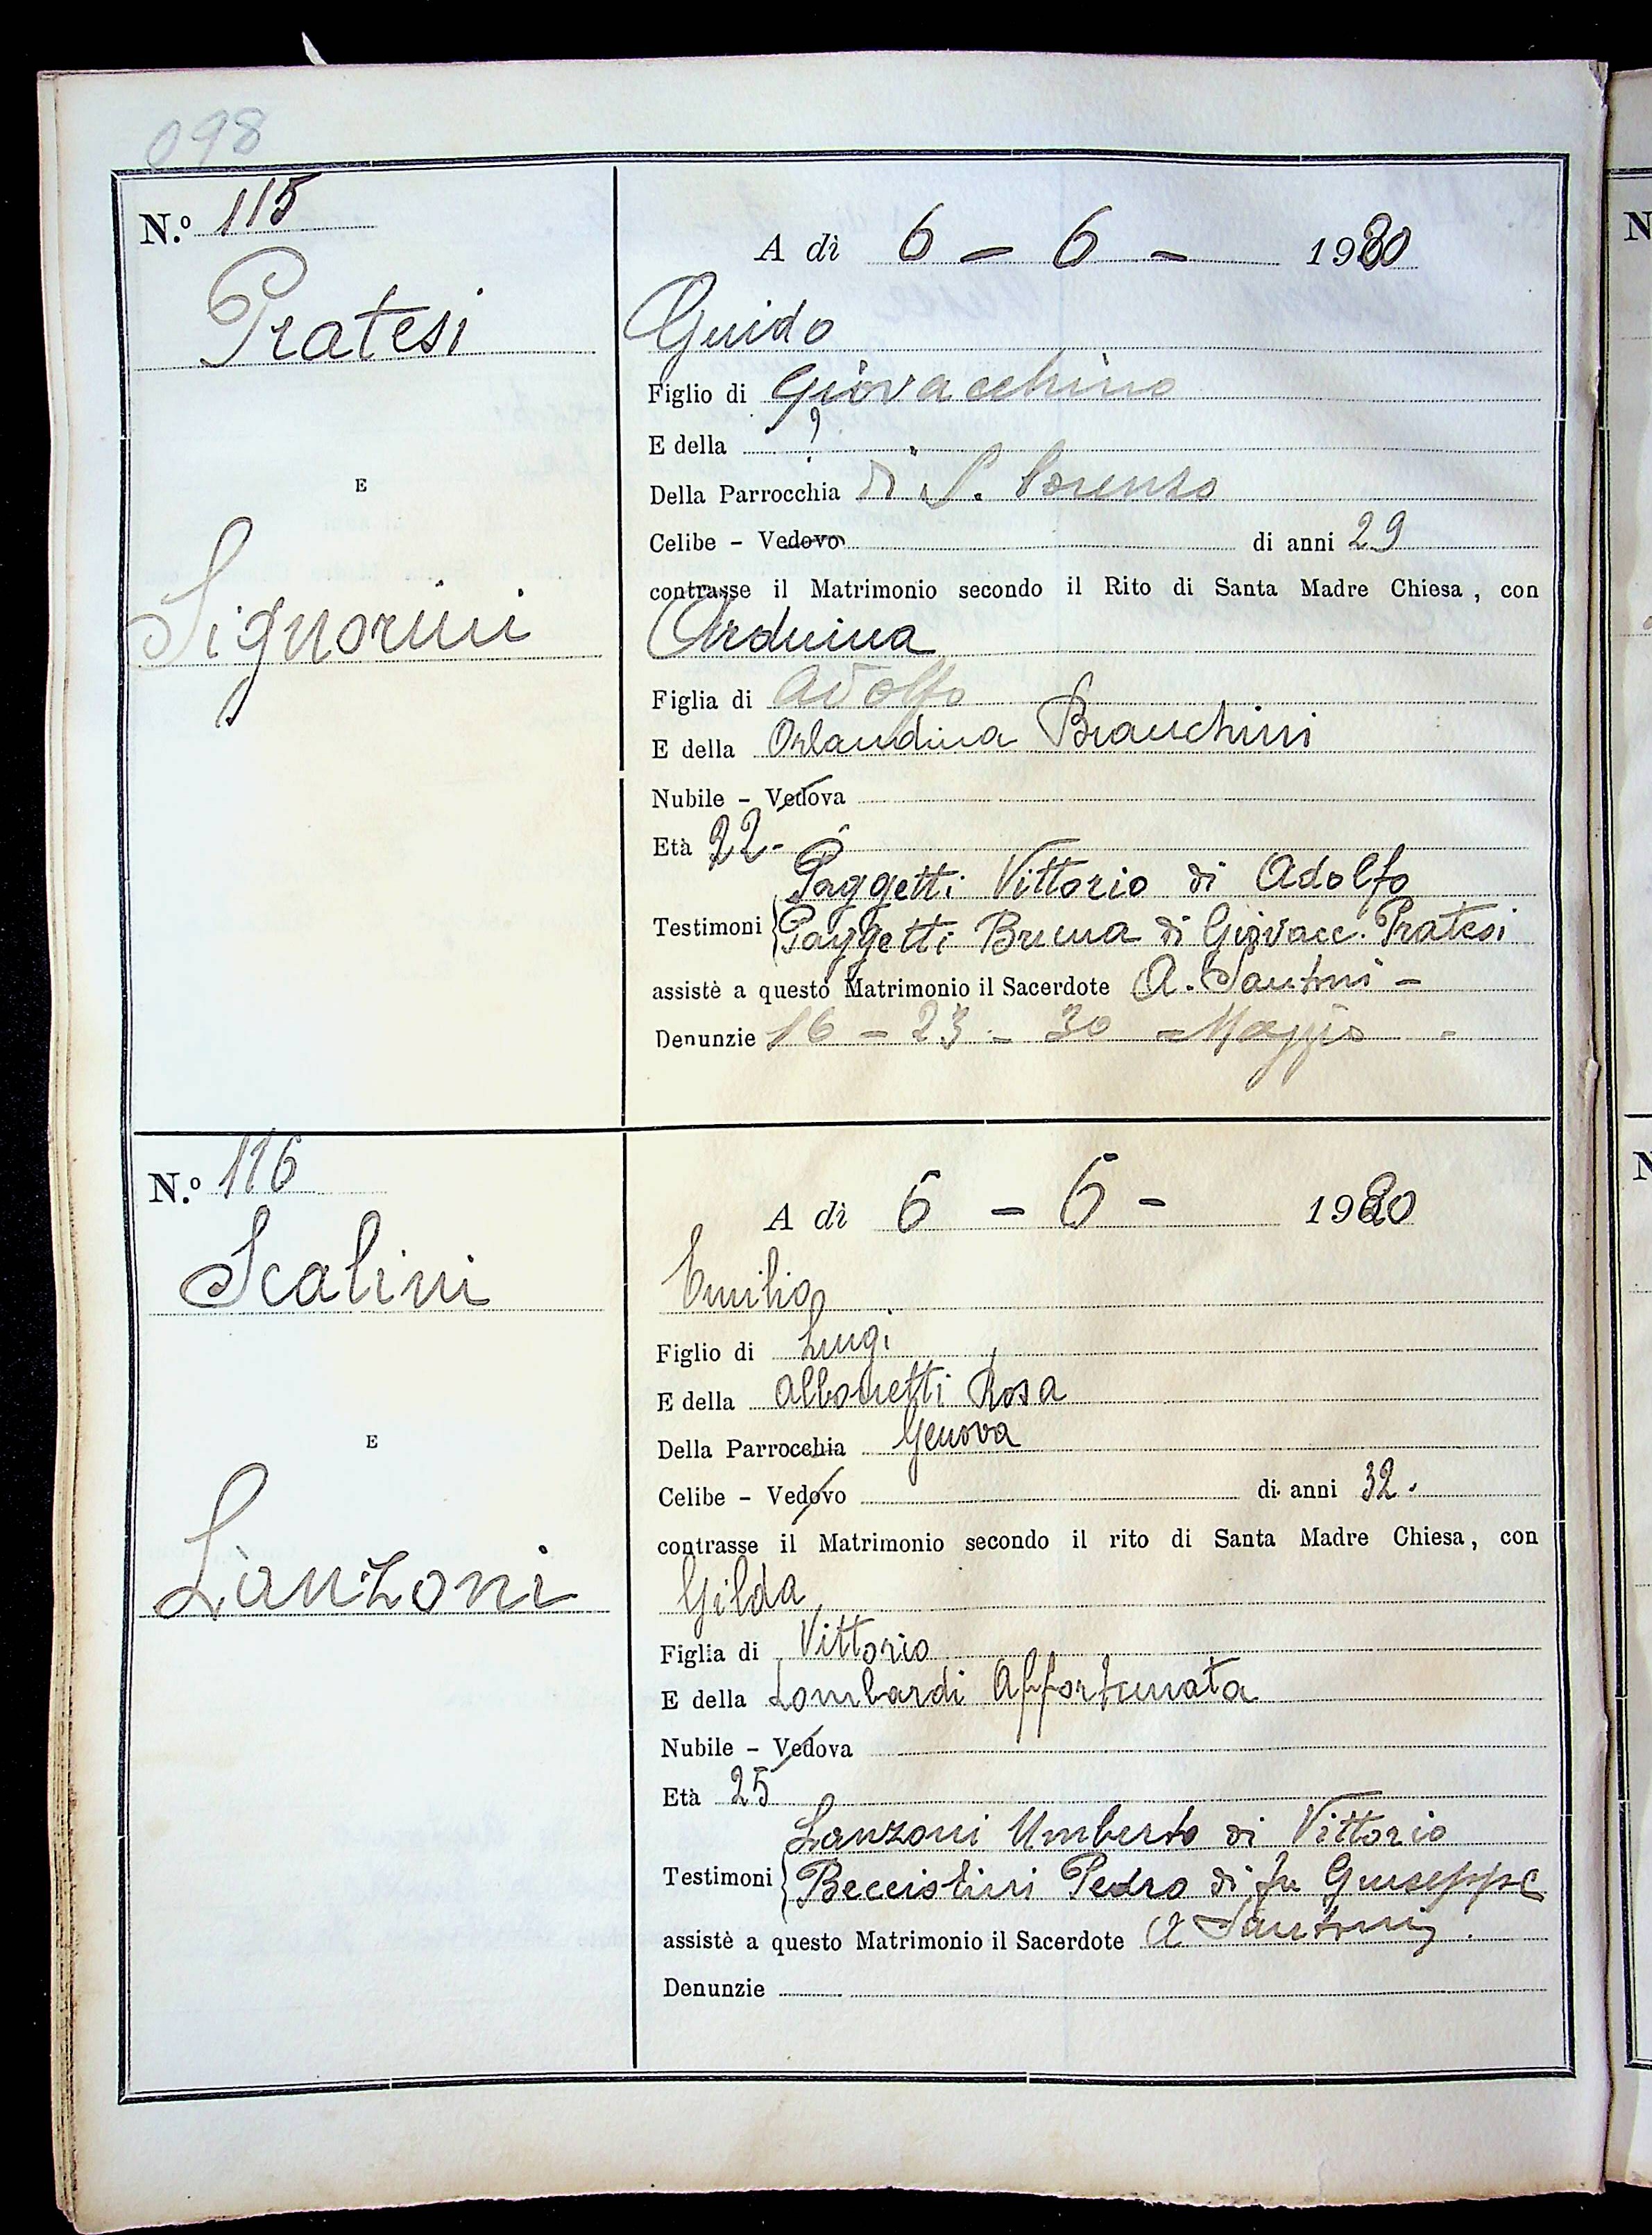 098
N.º 115
A dì 6 - 6 - 1920
Pratesi
Guido
Figlio di Giovacchino
E della ?
Della Parrocchia di S. Lorenzo
E
Celibe - Vedovo di anni 29
contrasse il Matrimonio secondo il Rito di Santa Madre Chiesa, con
Signorini
Arduina
Figlia di Adolfo
E della Orlandina Bianchini
Nubile - Vedova
Età 22 -
Paggetti Vittorio di Adolfo
Testimoni Paggetti Bruna di Giovacc. Pratesi
assistè a questo Matrimonio il Sacerdote A. Santoni -
Denunzie 16 - 23 - 30 - Maggio -
N.º 116
A dì 6 - 6 - 1920
Scalini
Emilio
Figlio di Luigi
E della Albonetti Rosa
E
Della Parrocchia Genova
Celibe - Vedovo di anni 32.
contrasse il Matrimonio secondo il rito di Santa Madre Chiesa, con
Lanzoni
Gilda
Figlia di Vittorio
E della Lombardi Affortunata
Nubile - Vedova
Età 25
Lanzoni Umberto di Vittorio
Testimoni Pedro di fu Giuseppe
assistè a questo Matrimonio il Sacerdote A Santoni.
Denunzie
N
N